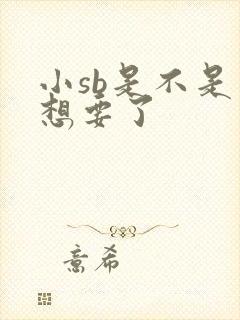 小sb是不是
想要了
意希